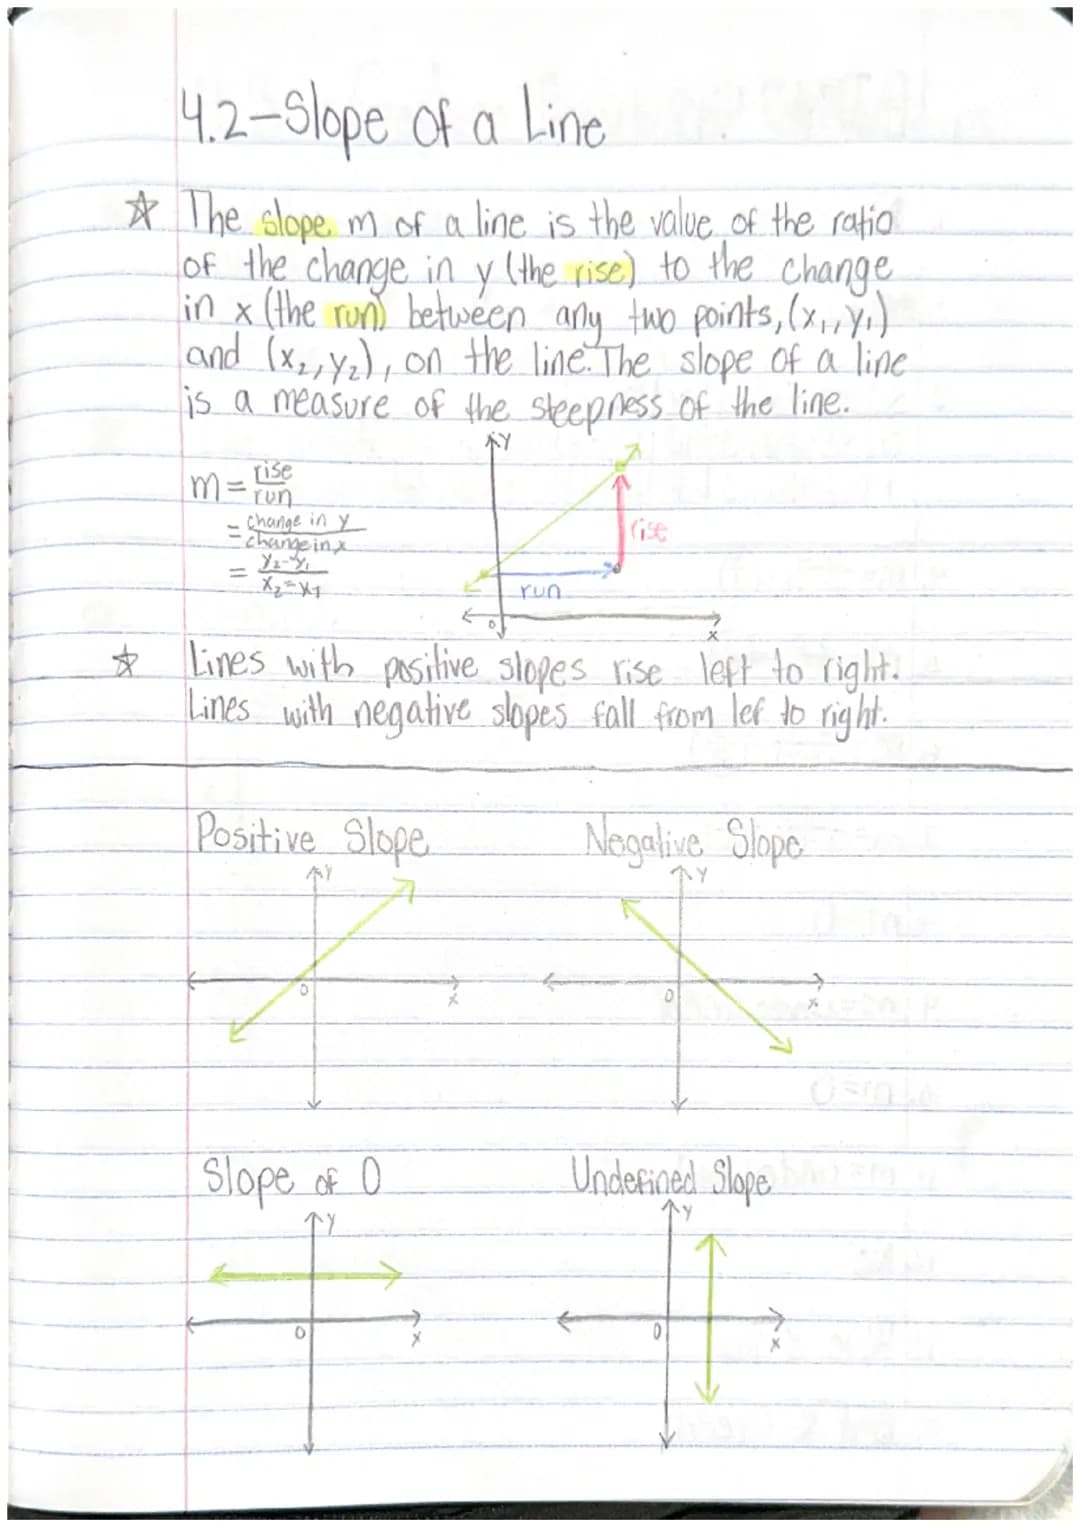 4.2-Slope of a Line
☆ The slope m of a line is the value of the ratio
of the change in y (the rise) to the change
in x (the run) between any two points, (x₁, y₁)
and (x₂, y₂), on the line. The slope of a line
is a measure of the steepness of the line.
m = rise/run
= change in y/change in x
= y₂-y₁/x₂-x₁
y
rise
run
0
x
☆ Lines with positive slopes rise left to right.
Lines with negative slopes fall from lef to right.
Positive Slope Negative Slope
y y
0 x 0 x
Slope of 0 Undefined Slope
y y
0 x 0 x